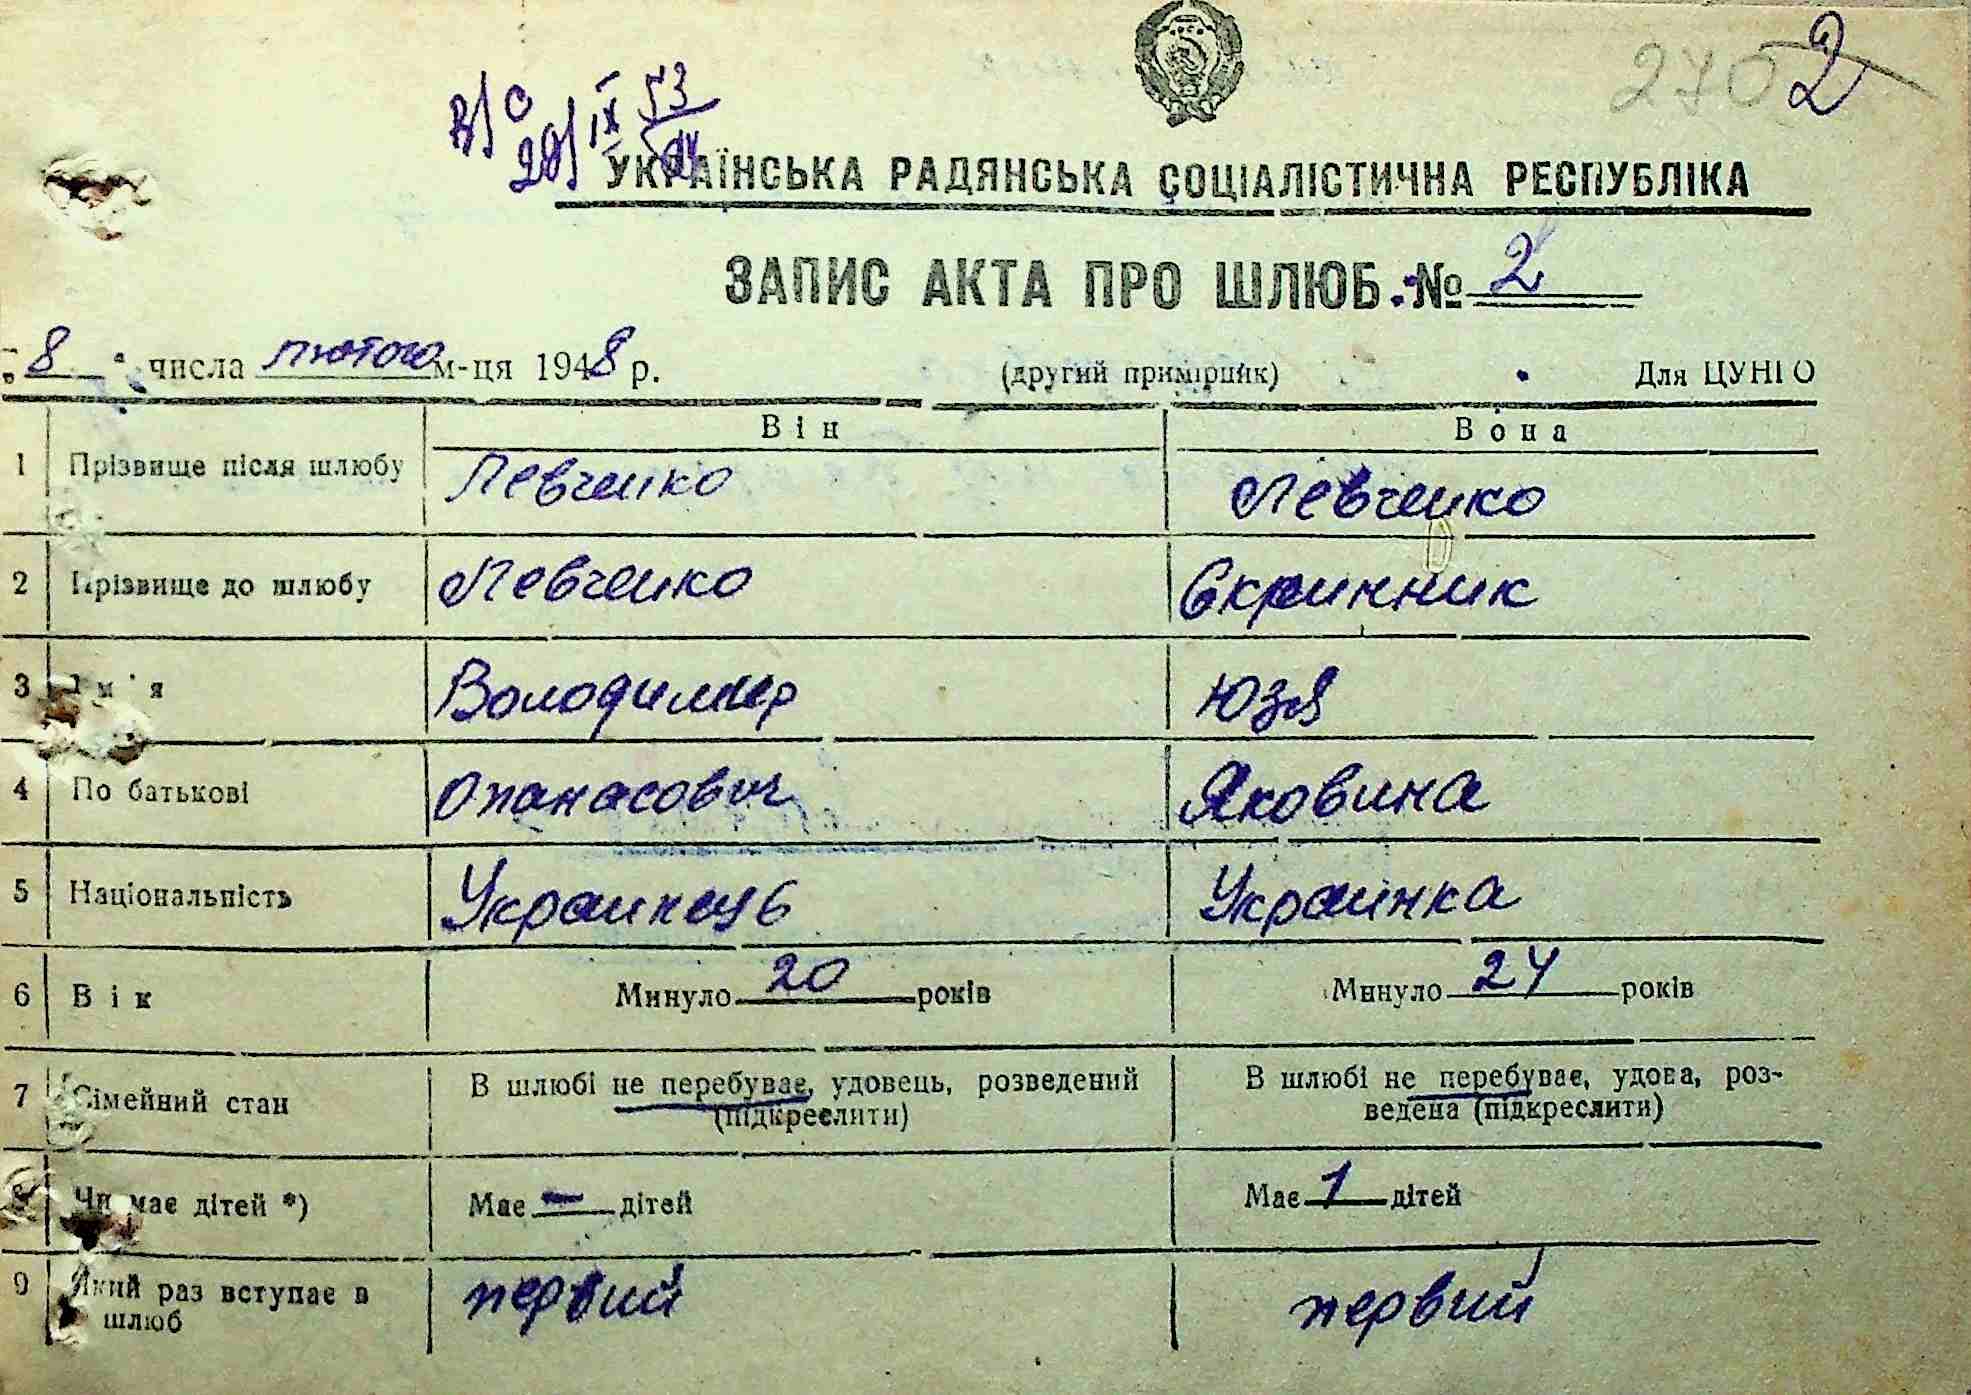 270 2
В/О 20/IX 53
УКРАЇНСЬКА РАДЯНСЬКА СОЦІАЛІСТИЧНА РЕСПУБЛІКА
ЗАПИС АКТА ПРО ШЛЮБ. № 2
„8“ числа лютого м-ця 1948 р. (другий примірник) Для ЦУНГО
Він Вона
1 Прізвище після шлюбу Левченко Левченко
2 Прізвище до шлюбу Левченко Скринник
3 Ім'я Володимир Юзя
4 По батькові Опанасович Яковина
5 Національність Украинець Украинка
6 Вік Минуло 20 років Минуло 24 років
7 Сімейний стан В шлюбі не перебуває, удовець, розведений В шлюбі не перебуває, удова, роз-
(підкреслити) ведена (підкреслити)
8 Чи має дітей *) Має — дітей Має 1 дітей
9 Який раз вступає в первий первий
шлюб